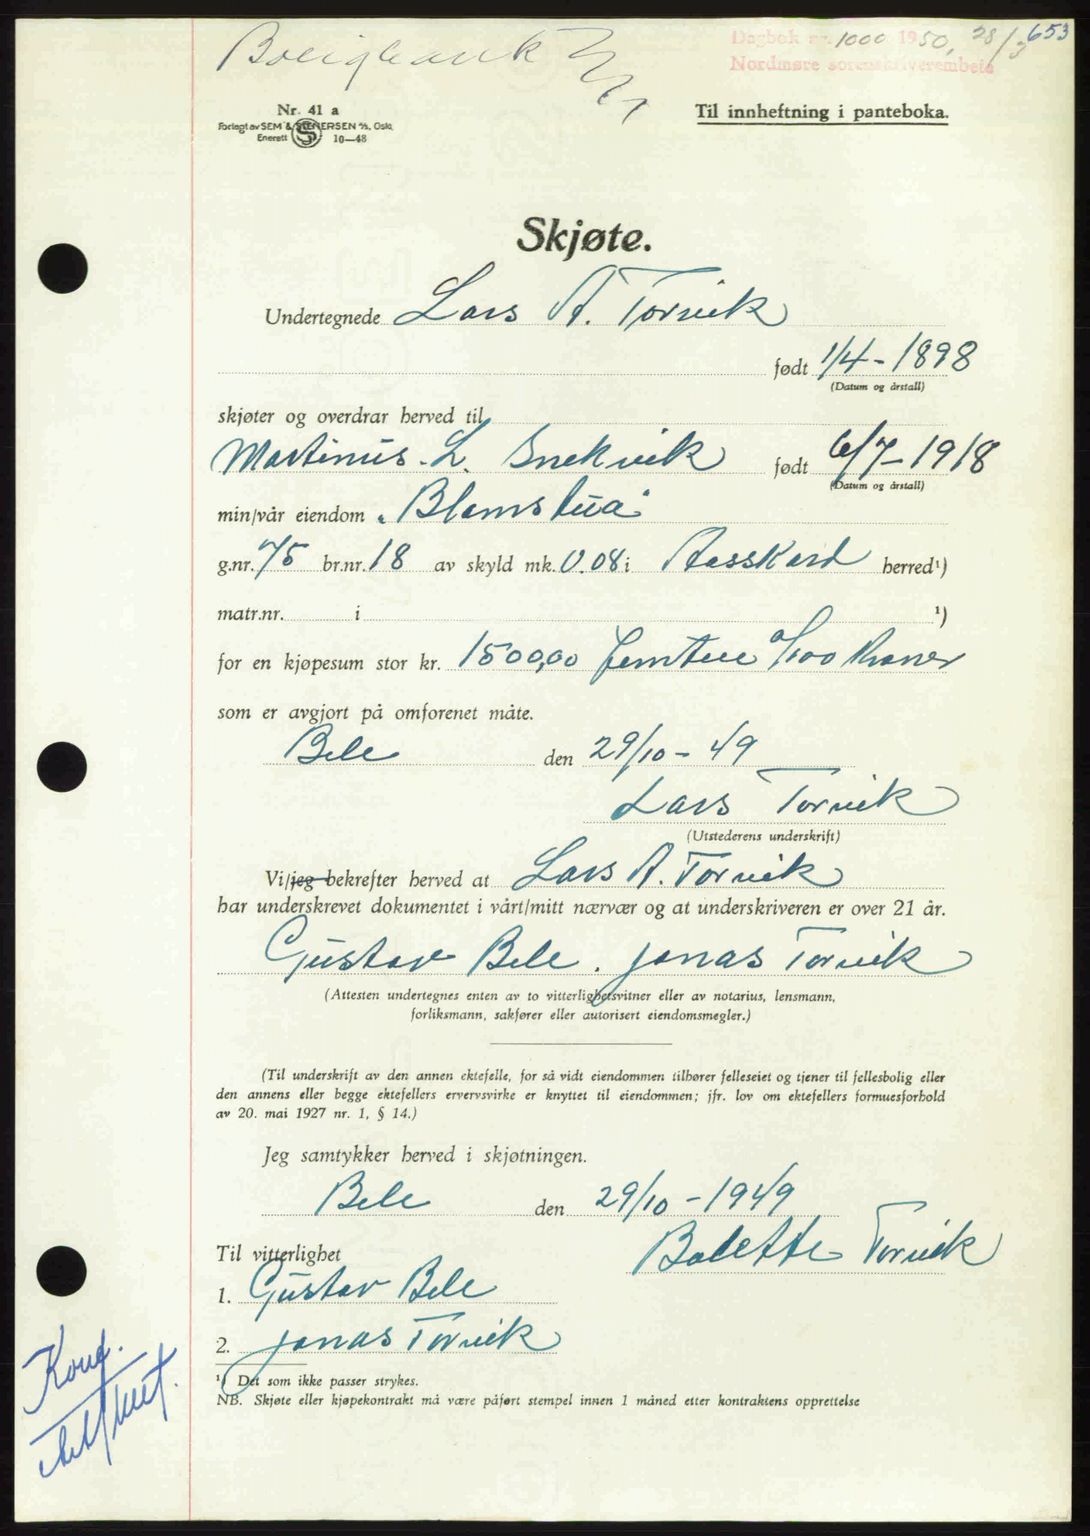 653
Dagbok nr. 1000 1950, 28/3
Nordmøre sorenskriverembete
Nr. 41 a
Forlagt av SEM & STENERSEN A/S, Oslo.
Enerett 10—48
Til innheftning i panteboka.
Skjøte.
Undertegnede Lars A. Torvik
født 1/4 - 1898
(Datum og årstall)
skjøter og overdrar herved til
Martinus L. Snekvik født 6/7 - 1918
(Datum og årstall)
min/vår eiendom "Blomstua"
g.nr. 75 br.nr. 18 av skyld mk. 0.08 i Aasskard herred¹)
matr.nr. i ¹)
for en kjøpesum stor kr. 1500,00 femten 0/100 kroner
som er avgjort på omforenet måte.
Bele den 29/10 - 49
Lars Torvik
(Utstederens underskrift)
Vi/jeg bekrefter herved at Lars A. Torvik
har underskrevet dokumentet i vårt/mitt nærvær og at underskriveren er over 21 år.
Gustav Bele. Jonas Torvik
(Attesten undertegnes enten av to vitterlighetsvitner eller av notarius, lensmann,
forliksmann, sakfører eller autorisert eiendomsmegler.)
(Til underskrift av den annen ektefelle, for så vidt eiendommen tilhører felleseiet og tjener til fellesbolig eller
den annens eller begge ektefellers ervervsvirke er knyttet til eiendommen; jfr. lov om ektefellers formuesforhold
av 20. mai 1927 nr. 1, § 14.)
Jeg samtykker herved i skjøtningen.
Bele den 29/10 - 1949
Bolette Torvik
Til vitterlighet
1. Gustav Bele
2. Jonas Torvik
¹) Det som ikke passer strykes.
NB. Skjøte eller kjøpekontrakt må være påført stempel innen 1 måned etter kontraktens opprettelse